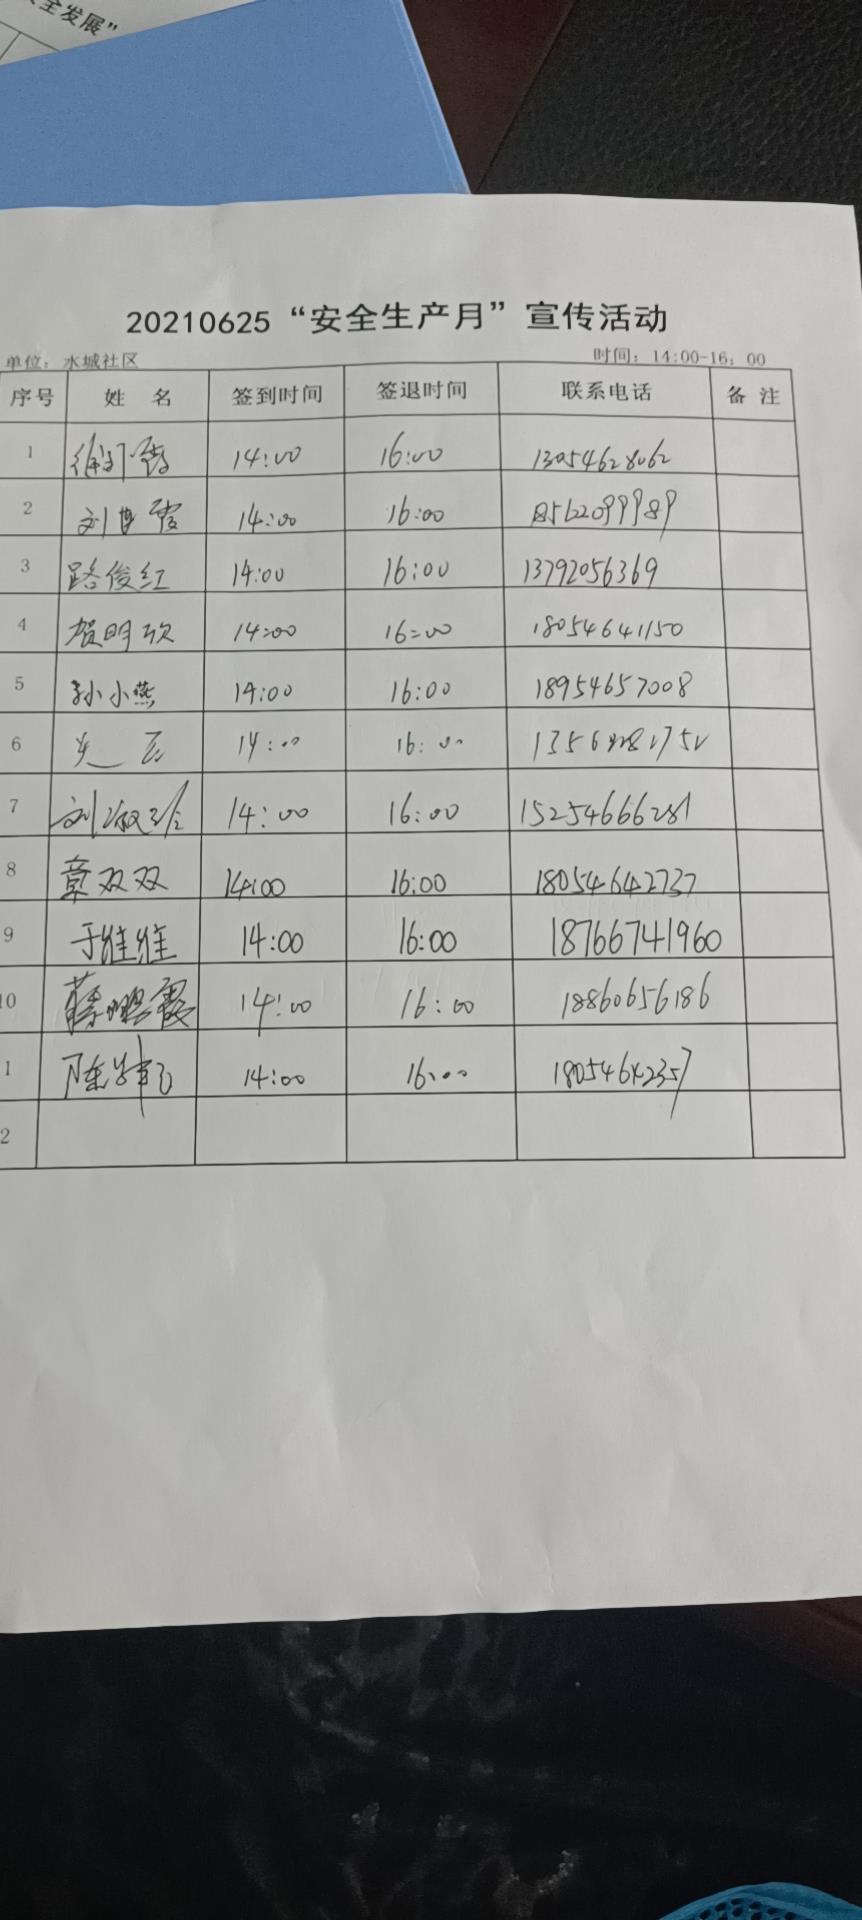 全发展”
20210625“安全生产月”宣传活动
单位：水城社区 时间：14:00-16：00
序号 姓 名 签到时间 签退时间 联系电话 备 注
1 14:00 16:00 13054628062
2 刘 霞 14:00 16:00 18562099989
3 路俊红 14:00 16:00 13792056369
4 贺明欣 14:00 16:00 18054641150
5 孙小燕 14:00 16:00 18954657008
6 14:00 16:00
7 刘淑珍 14:00 16:00 15254666281
8 章双双 14:00 16:00 18054642737
9 于雅雅 14:00 16:00 18766741960
10 霞 14:00 16:00 18860656186
1 14:00 16:00 18054642357
2